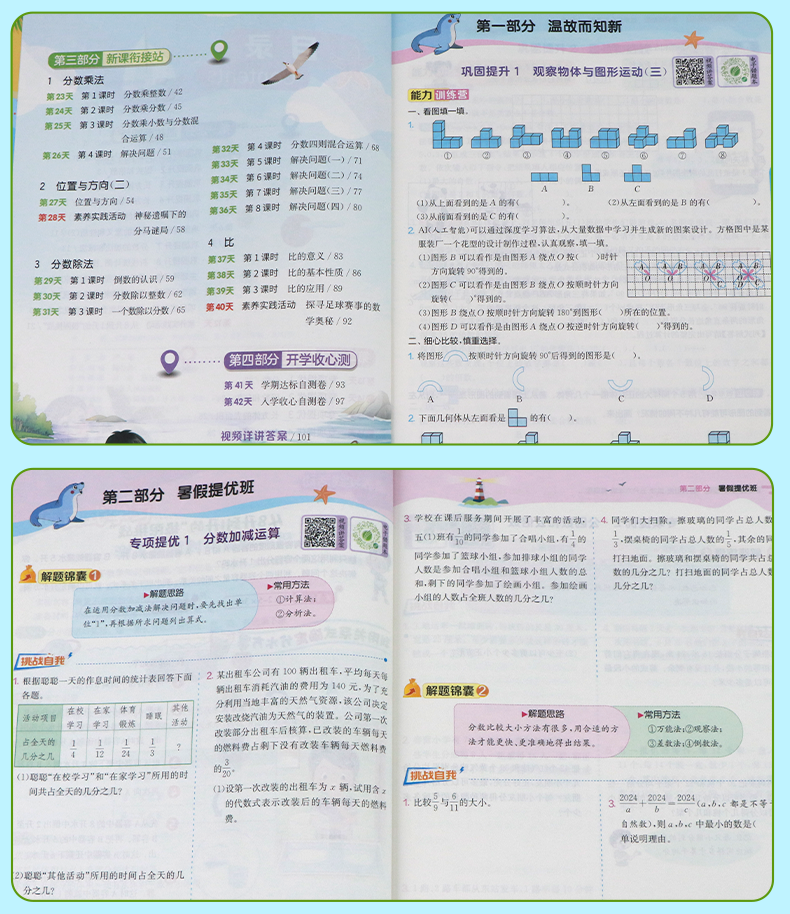 第三部分 新课衔接站
1 分数乘法
第23天 第1课时 分数乘整数 / 42
第24天 第2课时 分数乘分数 / 45
第25天 第3课时 分数乘小数与分数混
合运算 / 48
第26天 第4课时 解决问题 / 51
2 位置与方向(二)
第27天 位置与方向 / 54
第28天 素养实践活动 神秘遗嘱下的
分马谜局 / 58
3 分数除法
第29天 第1课时 倒数的认识 / 59
第30天 第2课时 分数除以整数 / 62
第31天 第3课时 一个数除以分数 / 65
第32天 第4课时 分数四则混合运算 / 68
第33天 第5课时 解决问题(一) / 71
第34天 第6课时 解决问题(二) / 74
第35天 第7课时 解决问题(三) / 77
第36天 第8课时 解决问题(四) / 80
4 比
第37天 第1课时 比的意义 / 83
第38天 第2课时 比的基本性质 / 86
第39天 第3课时 比的应用 / 89
第40天 素养实践活动 探寻足球赛事的数
学奥秘 / 92
第四部分 开学收心测
第41天 学期达标自测卷 / 93
第42天 入学收心自测卷 / 97
视频详讲答案 / 101
第一部分 温故而知新
巩固提升1 观察物体与图形运动(三)
能力训练营
一、看图填一填。
1.
① ② ③ ④ ⑤ ⑥ ⑦ ⑧
A B C
(1)从上面看到的是 A 的有( )。 (2)从左面看到的是 B 的有( )。
(3)从前面看到的是 C 的有( )。
2. AI(人工智能)可以通过深度学习算法,从大量数据中学习并生成新的图案设计。方格图中是某
服装厂一个花型的设计制作过程,认真观察,填一填。
(1)图形 B 可以看作是由图形 A 绕点 O 按( )时针
方向旋转 90°得到的。
(2)图形 C 可以看作是由图形 B 绕点 O 按顺时针方向
旋转( )°得到的。
(3)图形 B 绕点 O 按顺时针方向旋转 180°到图形( )所在的位置。
(4)图形 D 可以看作是由图形 A 绕点 O 按逆时针方向旋转( )°得到的。
二、细心比较,慎重选择。
1. 将图形 按顺时针方向旋转 90°后得到的图形是( )。
A B C D
2. 下面几何体从左面看是 的有( )。
第二部分 暑假提优班
专项提优1 分数加减运算
解题锦囊1
▶解题思路
在运用分数加减法解决问题时,要先找出单
位“1”,再根据所求问题列出算式。
▶常用方法
①计算法;
②分析法。
挑战自我
1. 根据聪聪一天的作息时间的统计表回答下面
各题。
活动项目 在校学习 在家学习 体育锻炼 睡眠 其他活动
占全天的几分之几 1/4 1/12 1/24 1/3 ?
(1)聪聪“在校学习”和“在家学习”所用的时
间共占全天的几分之几?
(2)聪聪“其他活动”所用的时间占全天的几
分之几?
2. 某出租车公司有 100 辆出租车,平均每天每
辆出租车消耗汽油的费用为 140 元,为了充
分利用当地丰富的天然气资源,该公司决定
安装改烧汽油为天然气的装置。公司第一次
改装部分出租车后核算,已改装的车辆每天
的燃料费占剩下没有改装车辆每天燃料费
的3/20。
(1)设第一次改装的出租车为 x 辆,试用含 x
的代数式表示改装后的车辆每天的燃料
费。
第二部分 暑假提优班
3. 学校在课后服务期间开展了丰富的活动,
五(1)班有1/10的同学参加了合唱小组,有1/4的
同学参加了篮球小组,参加排球小组的同学
人数是参加合唱小组和篮球小组人数的总
和,剩下的同学参加了绘画小组。参加绘画
小组的人数占全班人数的几分之几?
4. 同学们大扫除。擦玻璃的同学占总人数
1/3,摆桌椅的同学占总人数的1/5,其余的同
打扫地面。擦玻璃和摆桌椅的同学共占总
数的几分之几?打扫地面的同学占总人数
几分之几?
解题锦囊2
▶解题思路
分数比较大小方法有很多,用合适的方
法才能更快、更准确地得出结果。
▶常用方法
①万能法;②观察法;
③差数法;④倒数法。
挑战自我
1. 比较5/9与6/11的大小。
3. 2024/a+2024/b=2024/c(a、b、c 都是不等
自然数),则 a、b、c 中最小的数是(
单说明理由。